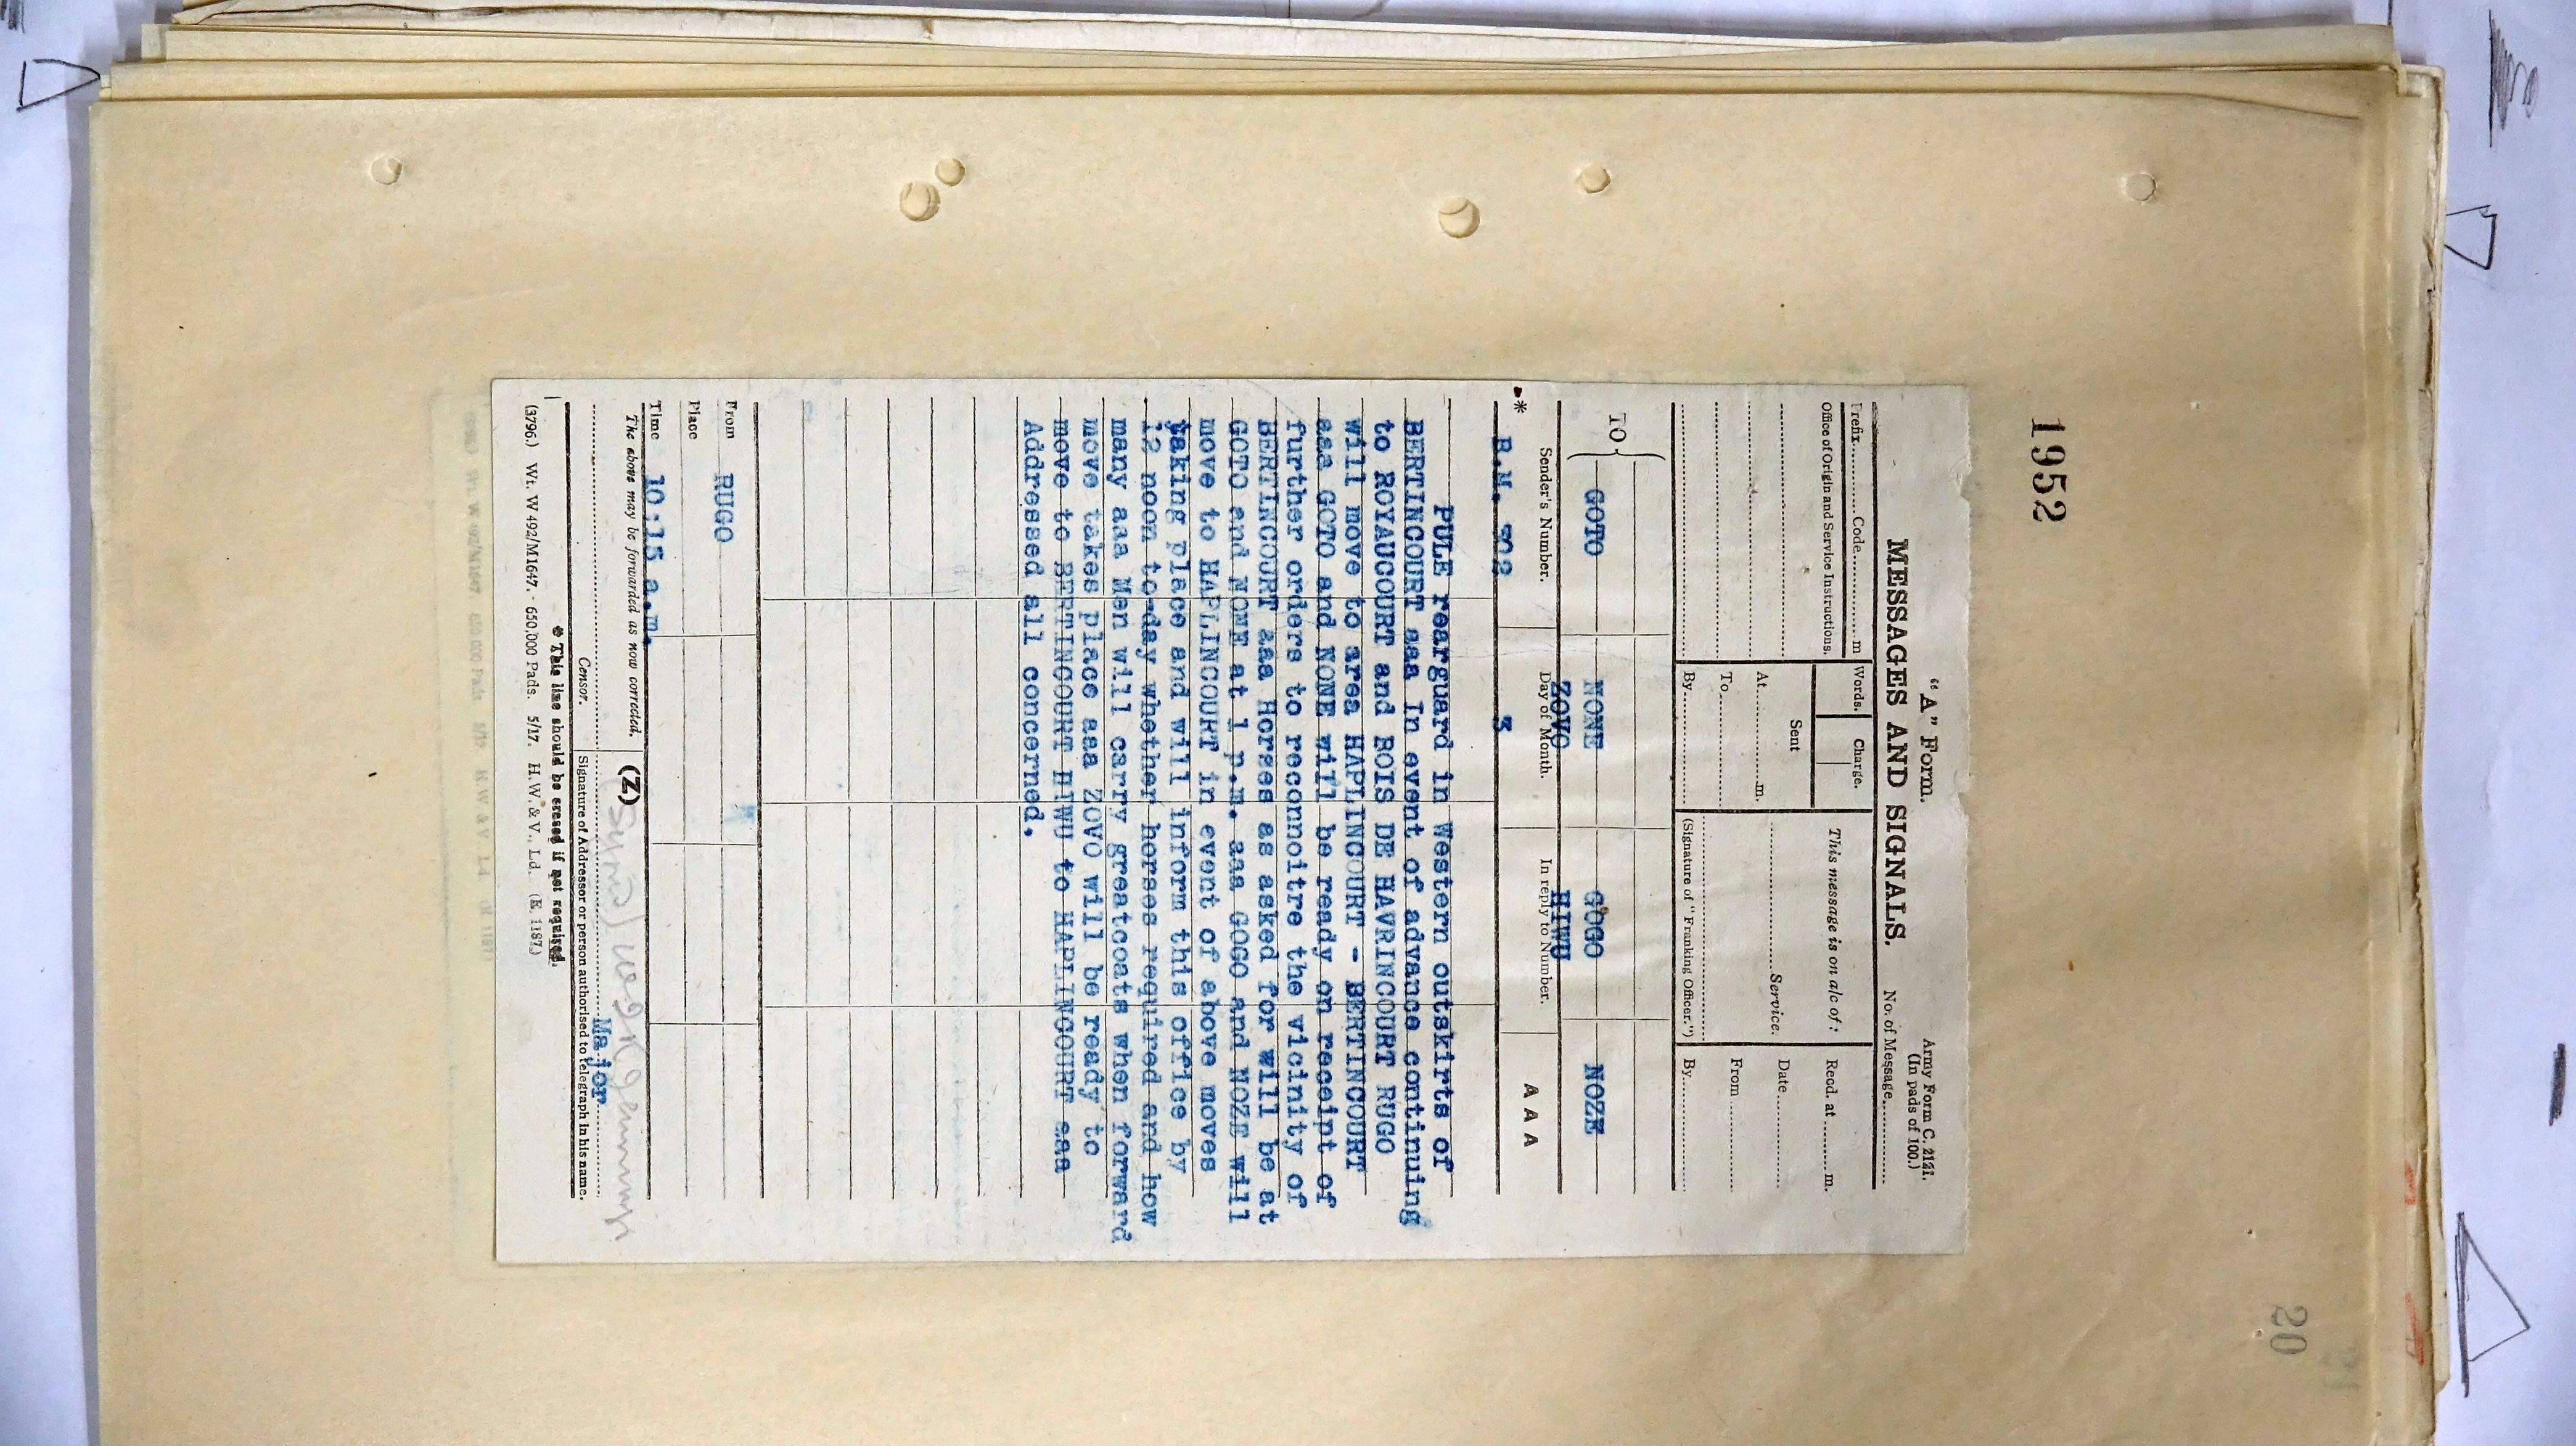 1952
20
"A" Form.
Army Form C. 2121.
(In pads of 100.)
MESSAGES AND SIGNALS.
No. of Message
Prefix Code m
Words.
Charge.
This message is on a/c of:
Recd. at m.
Office of Origin and Service Instructions.
Sent
Service.
Date
At m.
From
To
By
(Signature of "Franking Officer.")
By
TO
GOTO NONE GOGO NOZE
ZOVO HIWU
* Sender's Number. Day of Month. In reply to Number. A A A
B.M. 302 3
PULE rearguard in Western outskirts of
BERTINCOURT aaa In event of advance continuing
to ROYAUCOURT and BOIS DE HAVRINCOURT RUGO
will move to area HAPLINCOURT - BERTINCOURT
aaa GOTO and NONE will be ready on receipt of
further orders to reconnoitre the vicinity of
BERTINCOURT aaa Horses as asked for will be at
GOTO and NONE at 1 p.m. aaa GOGO and NOZE will
move to HAPLINCOURT in event of above moves
taking place and will inform this office by
12 noon to-day whether horses required and how
many aaa Men will carry greatcoats when forward
move takes place aaa ZOVO will be ready to
move to BERTINCOURT HIWU to HAPLINCOURT aaa
Addressed all concerned.
From RUGO
Place
Time 10:15 a.m.
The above may be forwarded as now corrected. (Z)
Major
Censor. Signature of Addressor or person authorised to telegraph in his name.
* This line should be erased if not required.
(3796.) Wt. W 492/M1647. 650,000 Pads. 5/17. H.W. & V., Ld. (E. 1187.)